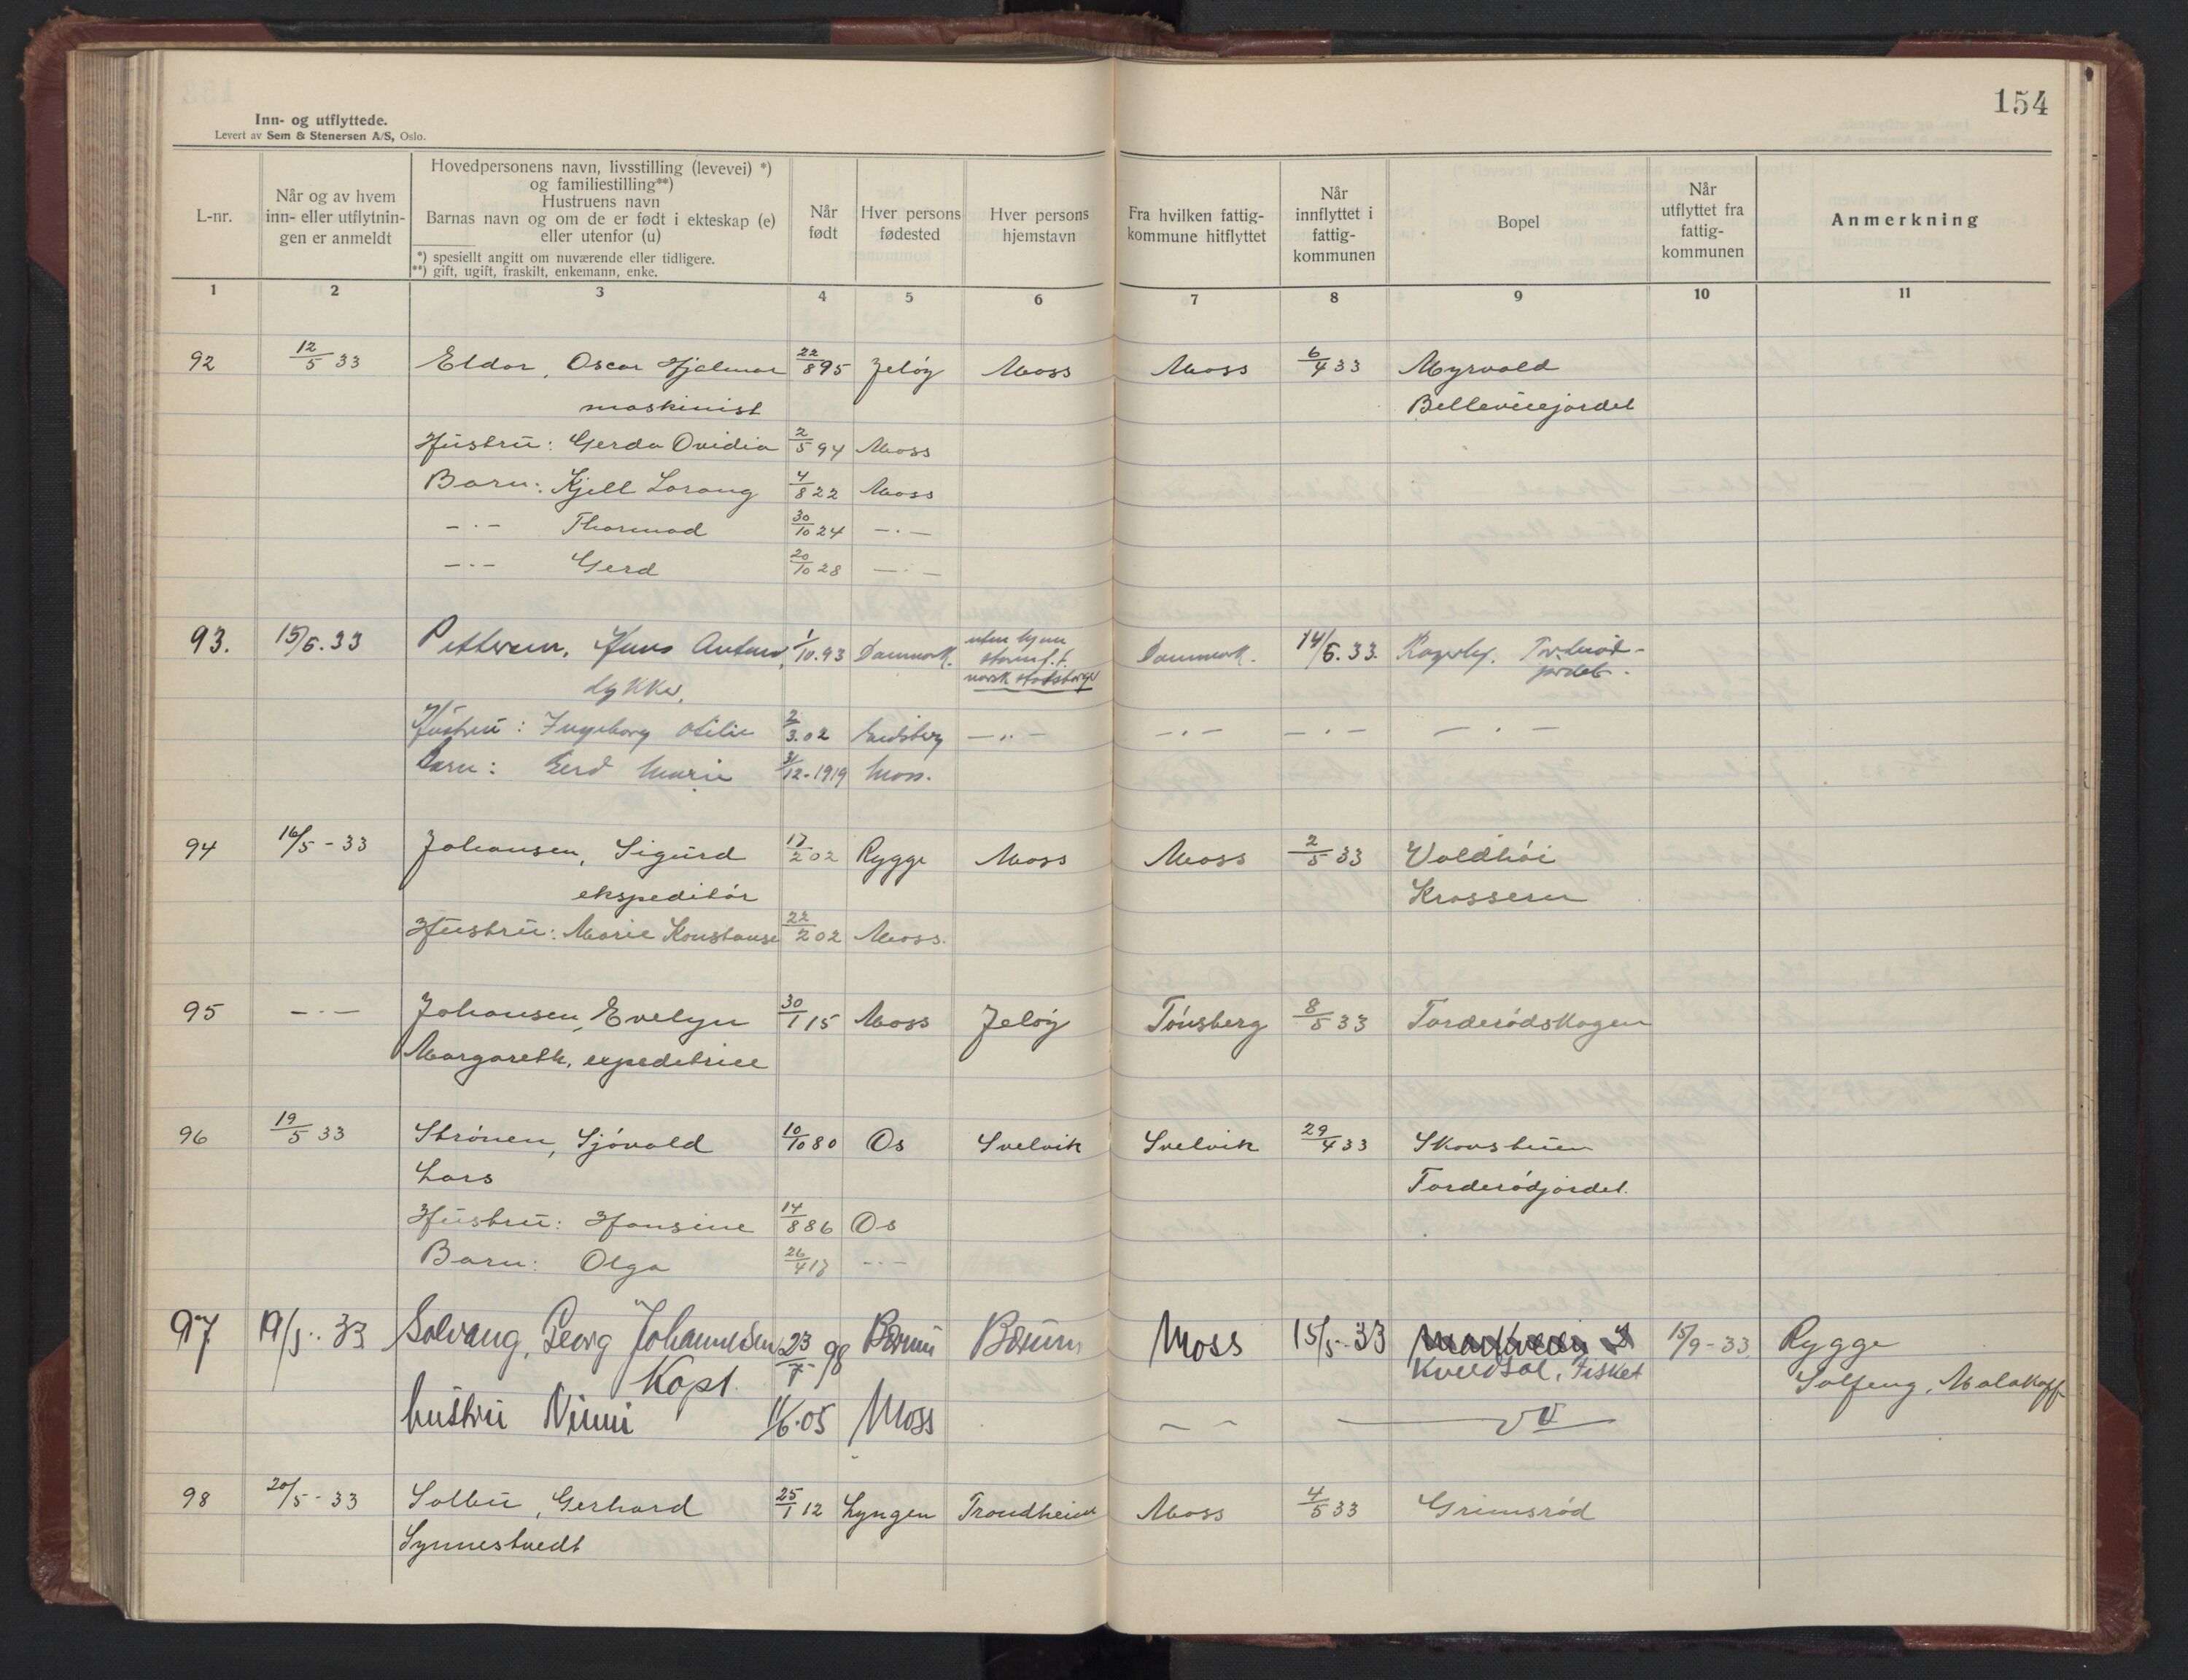 154
Inn- og utflyttede.
Levert av Sem & Stenersen A/S, Oslo.
L-nr.
Når og av hvem inn- eller utflytnin- gen er anmeldt
Hovedpersonens navn, livsstilling (levevei) *)
og familiestilling**)
Hustruens navn
Barnas navn og om de er født i ekteskap (e)
eller utenfor (u)
*) spesiellt angitt om nuværende eller tidligere.
**) gift, ugift, fraskilt, enkemann, enke.
Når født
Hver persons fødested
Hver persons hjemstavn
Fra hvilken fattig- kommune hitflyttet
Når innflyttet i fattig- kommunen
Bopel
Når utflyttet fra fattig- kommunen
Anmerkning
1 2 3 4 5 6 7 8 9 10 11
92 12/5 33 Eldor, Oscar Hjalmar 22/8 95 Jeløy Moss Moss 6/4 33 Myrvold
maskinist Bellevuejordet
Hustru: Gerda Ovidia 2/5 94 Moss
Barn: Kjell Lorang 4/8 22 Moss
-·- Thormod 30/10 24 -·-
-·- Gerd 20/10 28 -·-
93. 15/5.33 Hans Anton, 1/10.93 Danmark. uten hjem
stavn f.t. Danmark. 14/5.33.
dykker. norsk statsborger
Hustru: Ingeborg Otilie 2/3.02 Eidsberg -"- -·- -·- -·-
Barn: Gerd Marie 3/12-1919 Moss.
94 16/5-33 Johansen, Sigurd 17/2 02 Rygge Moss Moss 2/5 33 Voldhöi
ekspeditör Krossern
Hustru: Marie Konstanse 22/2 02 Moss.
95 -·- Johansen, Evelyn 30/1 15 Moss Jeløy Tönsberg 8/5 33 Torderödskogen
Margareth, expeditrice
96 19/5 33 Strönen, Sjövold 10/10 80 Os Svelvik Svelvik 29/4 33
Lars Torderödjordet.
Hustru: Hansine 14/8 86 Os
Barn: Olga -·-
97 19/5.. 33 Solvang, Georg Johannesen 98 Bærum Bærum Moss 15/5-33 15/9-33 Rygge
Kapt. Kveldsol, Fisket Solfeng, Malakoff
hustru Nimi 1/6.05 Moss
98 20/5-33 Solbu, Gerhard 25/1 12 Lyngen Trondheim Moss 4/5 33 Grimsröd
Synnestvedt